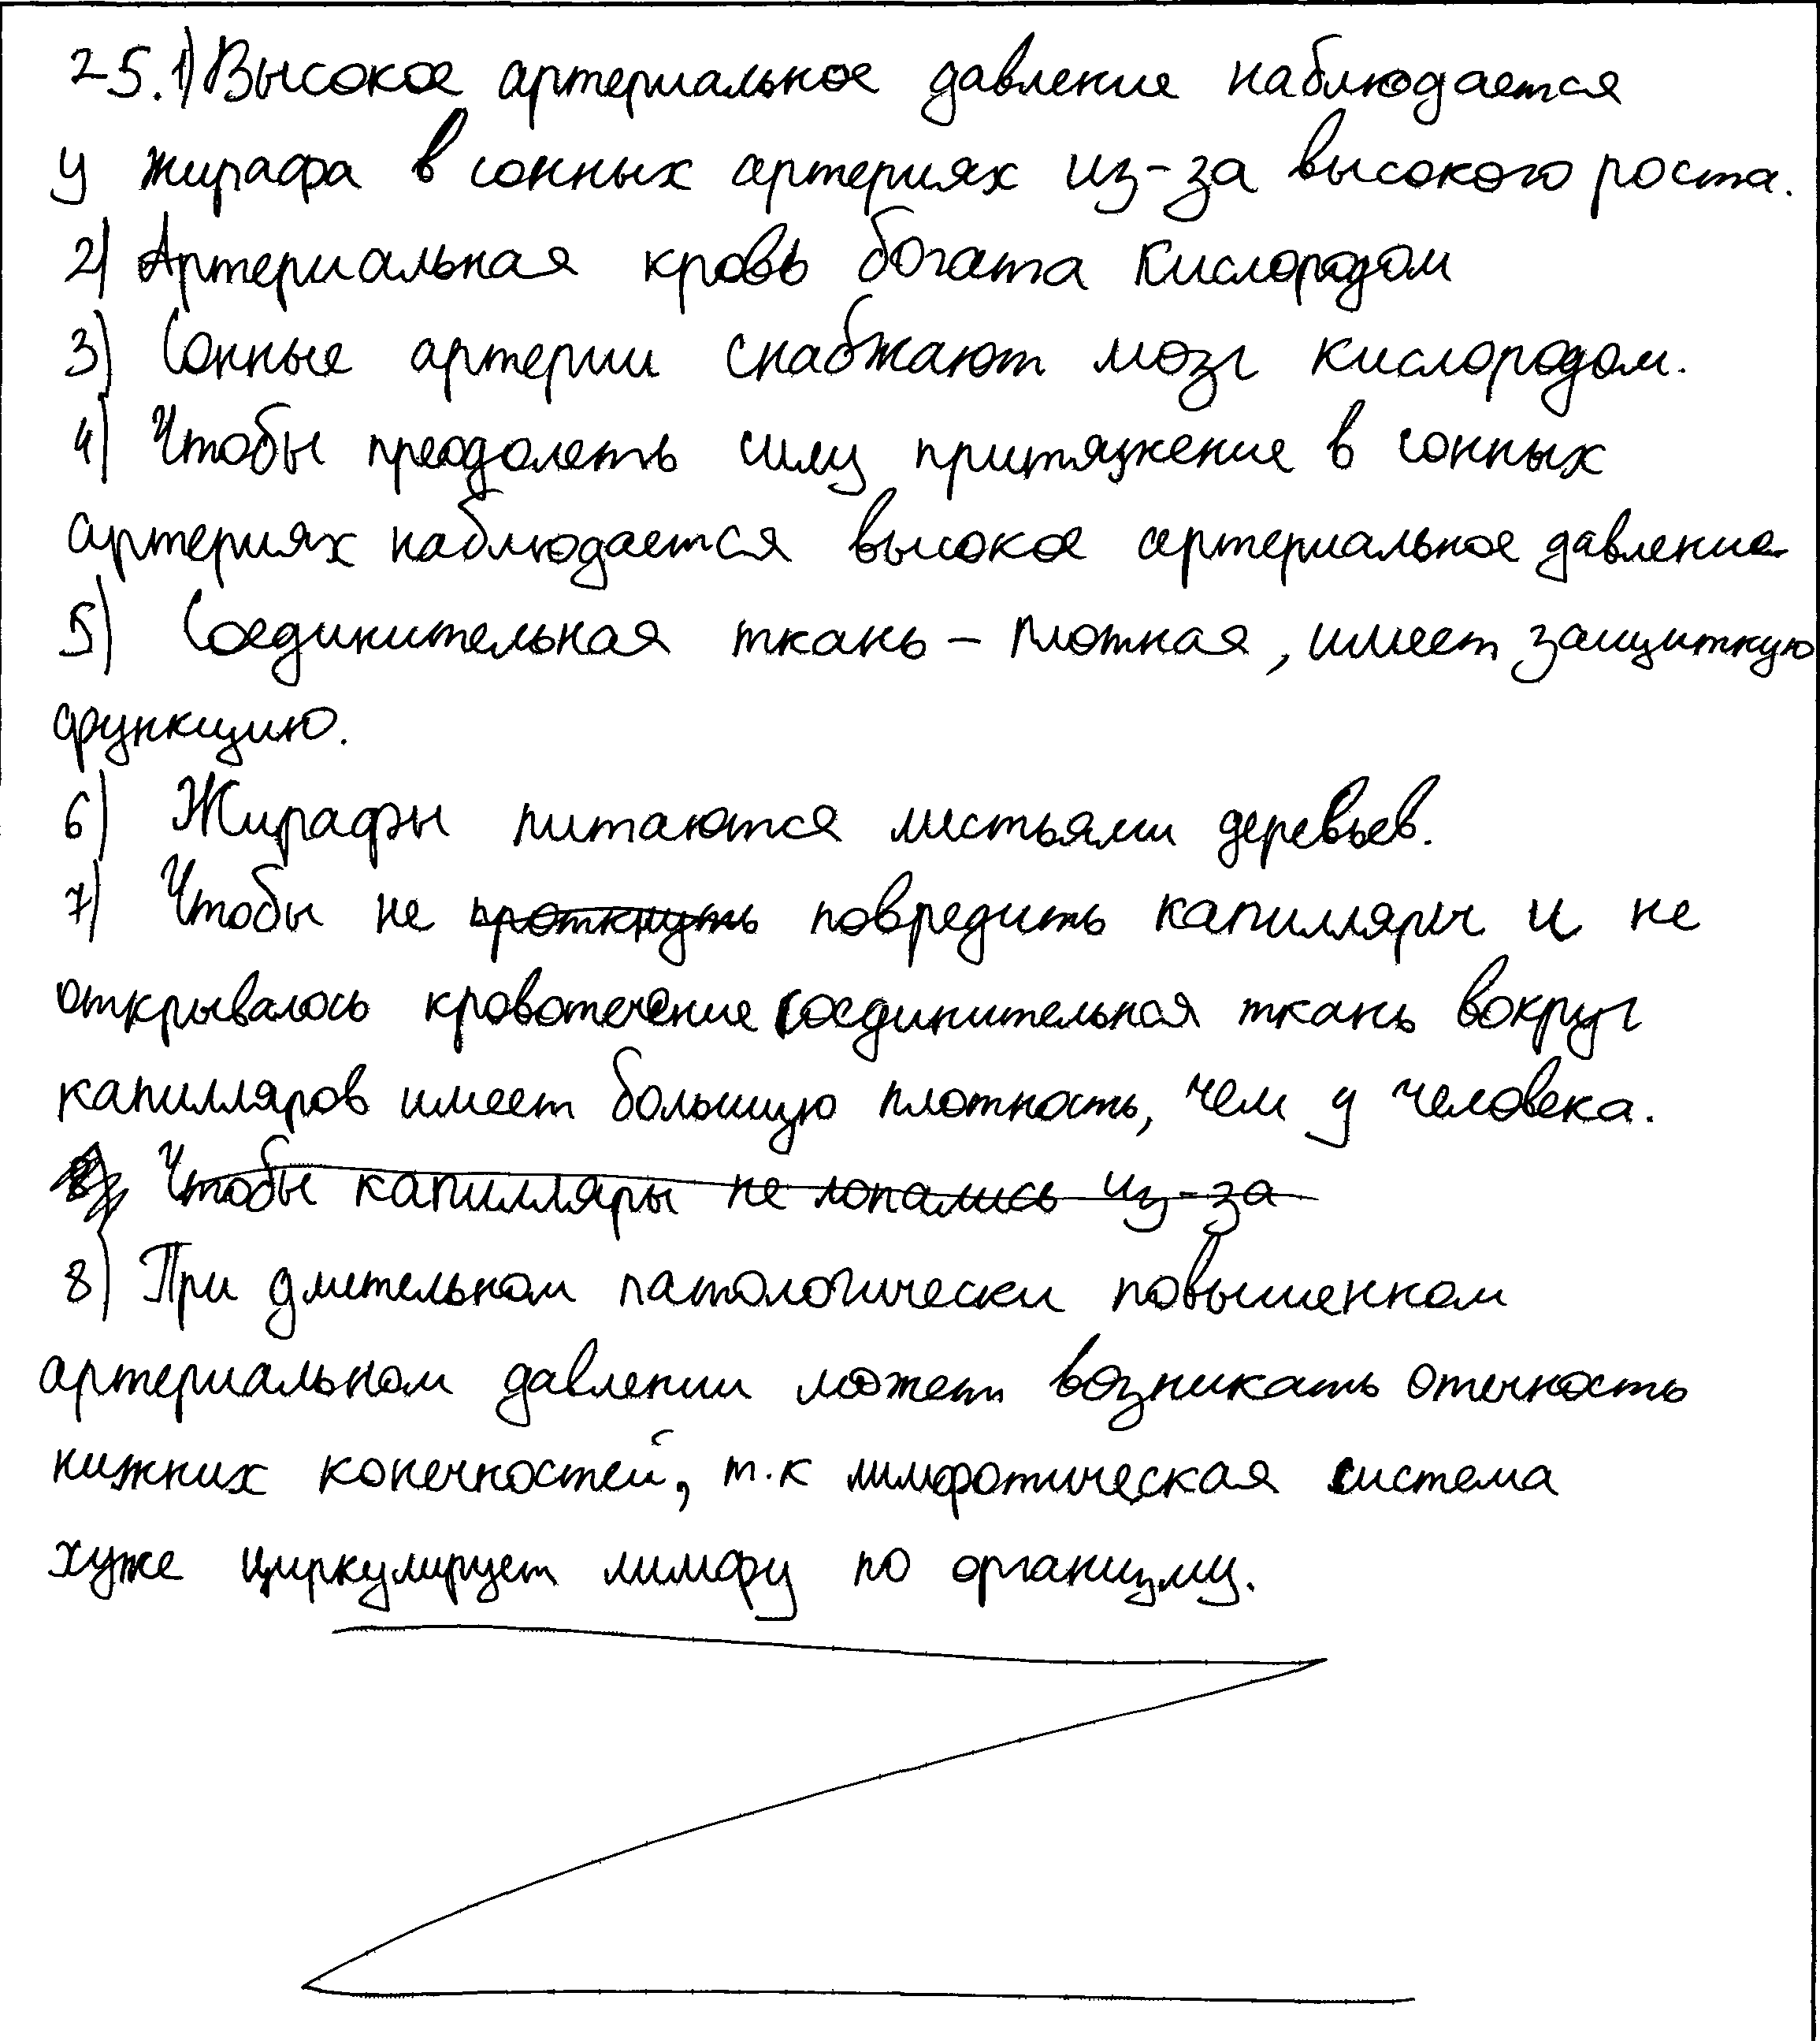 25.1) Высокое артериальное давление наблюдается
у жирафа в сонных артериях из-за высокого роста.
2) Артериальная кровь богата кислородом
3) Сонные артерии снабжают мозг кислородом.
4) Чтобы преодолеть силу притяжение в сонных
артериях наблюдается высокое артериальное давление
5) Соединительная ткань – плотная, имеет защитную
функцию.
6) Жирафы питаются листьями деревьев.
7) Чтобы не проткнуть повредить капилляры и не
открывалось кровотечение соединительная ткань вокруг
капилляров имеет большую плотность, чем у человека.
8) Чтобы капилляры не лопались из-за
8) При длительном патологически повышенном
артериальном давлении может возникать отечность
нижних конечностей, т.к лимфотическая система
хуже циркулирует лимфу по организму.